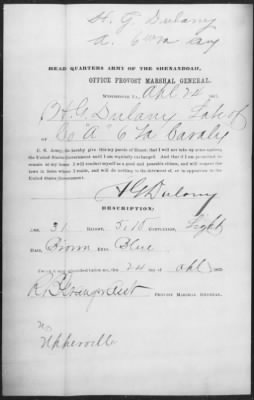 H. G. Dulany
A. 6 Va Cav
HEAD QUARTERS ARMY OF THE SHENANDOAH,
OFFICE PROVOST MARSHAL GENERAL.
WINCHESTER VA. Apl 24 186
I, H. G. Dulany Late of
Co "A" 6 Va Cavalry
C. S. Army, do hereby give this my parole of Honor that I will not take up arms against
the United States Government until I am regularly exchanged. And that if I am permitted
to remain at my home I will conduct myself as a good and peaceable citizen, and will respect the
laws in force where I reside, and will do nothing to the detriment of, or in opposition to the
United States Government.
H G Dulany
DESCRIPTION:
AGE, 31 HEIGHT, 5:10 COMPLEXION, Light
HAIR, Brown EYES, Blue
Sworn and subscribed before me, this 24 day of Apl 186
PROVOST MARSHAL GENERAL.
Upperville